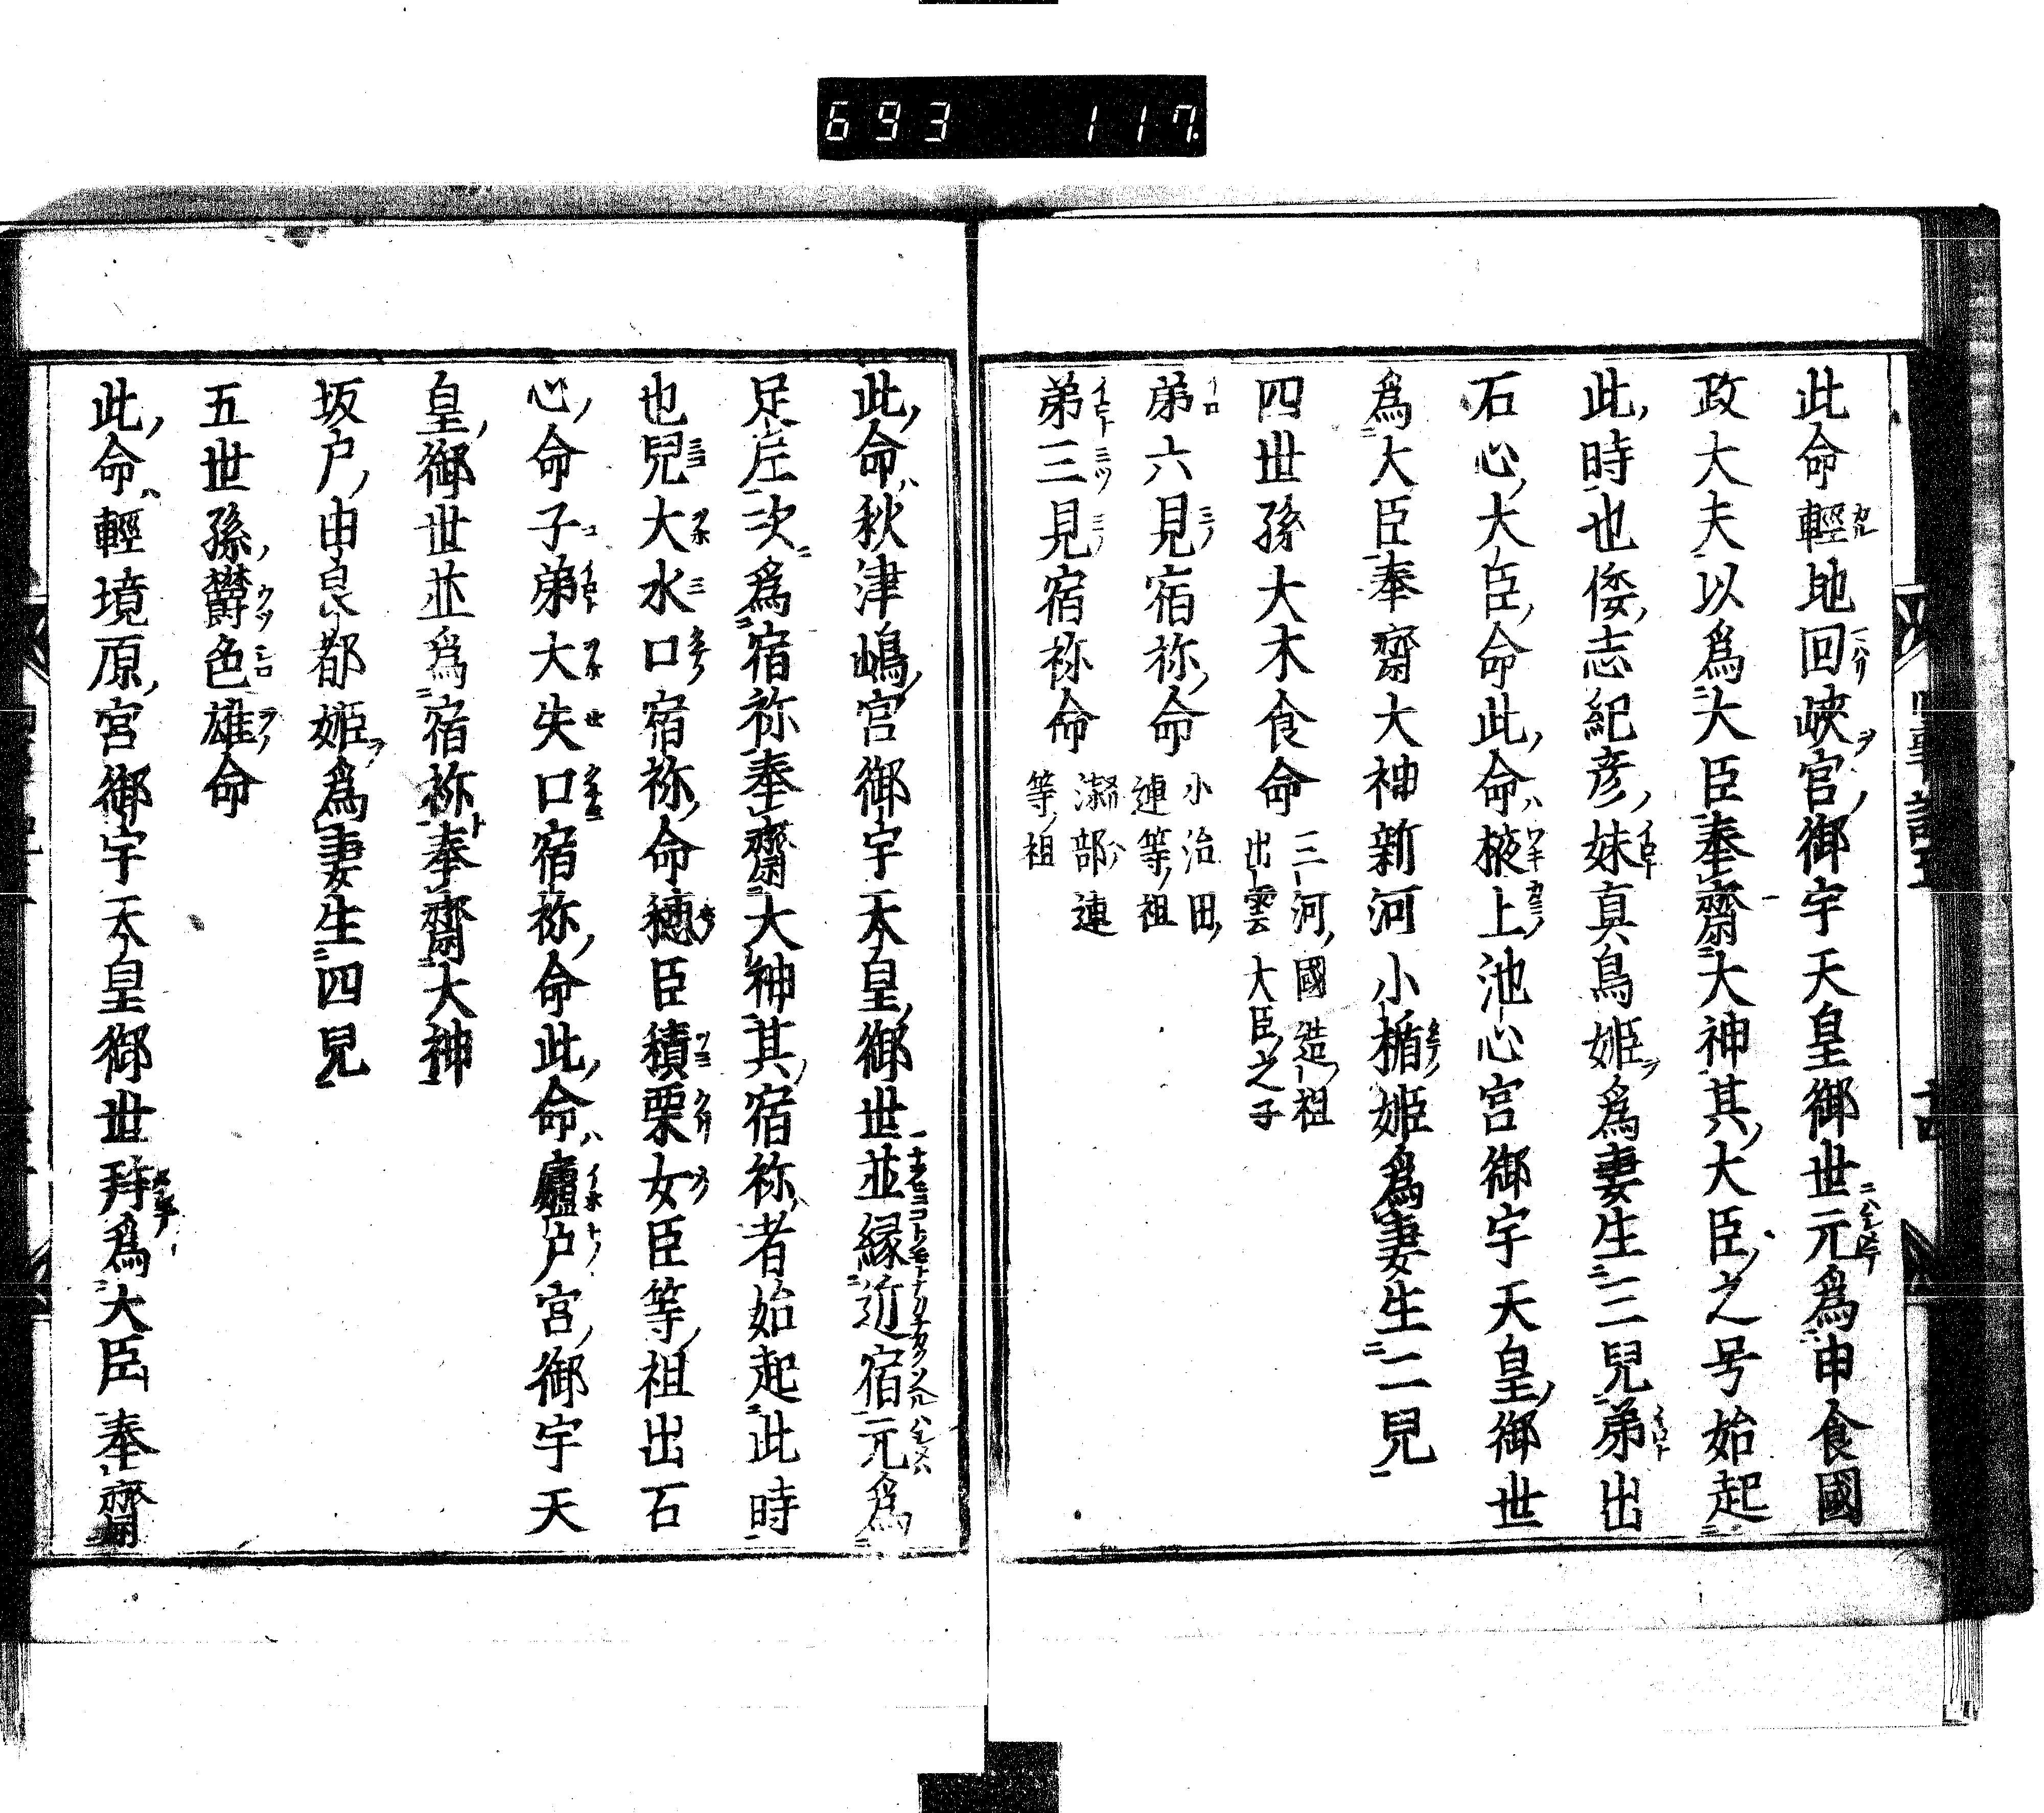 693 117
此命輕地回峽宮御宇天皇御世元為申食國
政大夫以為大臣奉齋大神其大臣之号始起
此時也倭志紀彦妹真鳥姫為妻生三兒弟出
石心大臣命此命掖上池心宮御宇天皇御世
為大臣奉齋大神新河小楯姫為妻生二兒
四世孫大木食命三河國造祖出雲大臣之子
弟六見宿祢命小治田連等祖
弟三見宿祢命漆部連等祖
此命秋津嶋宮御宇天皇御世並縁近宿元為
足尼次為宿祢奉齋大神其宿祢者始起此時
也兒大水口宿祢命穂臣積栗女臣等祖出石
心命子弟大矢口宿祢命此命廬戸宮御宇天
皇御世並為宿祢奉齋大神
坂戸由良都姫為妻生四兒
五世孫欝色雄命
此命輕境原宮御宇天皇御世拜為大臣奉齋